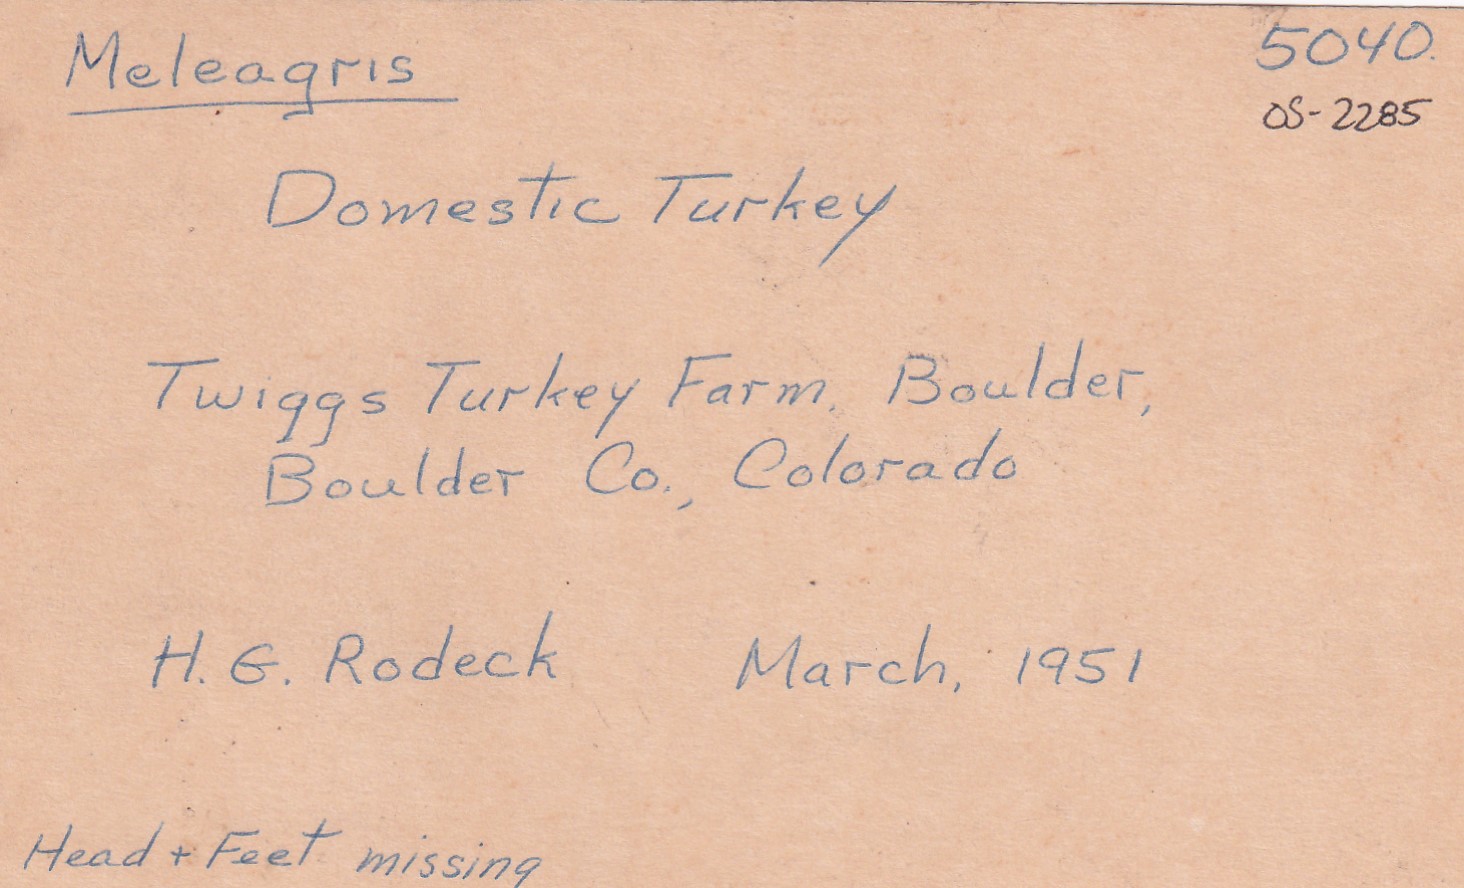 Meleagris
5040.
OS-2285
Domestic Turkey
Twiggs Turkey Farm, Boulder,
Boulder Co., Colorado
H. G. Rodeck March, 1951
Head + Feet missing